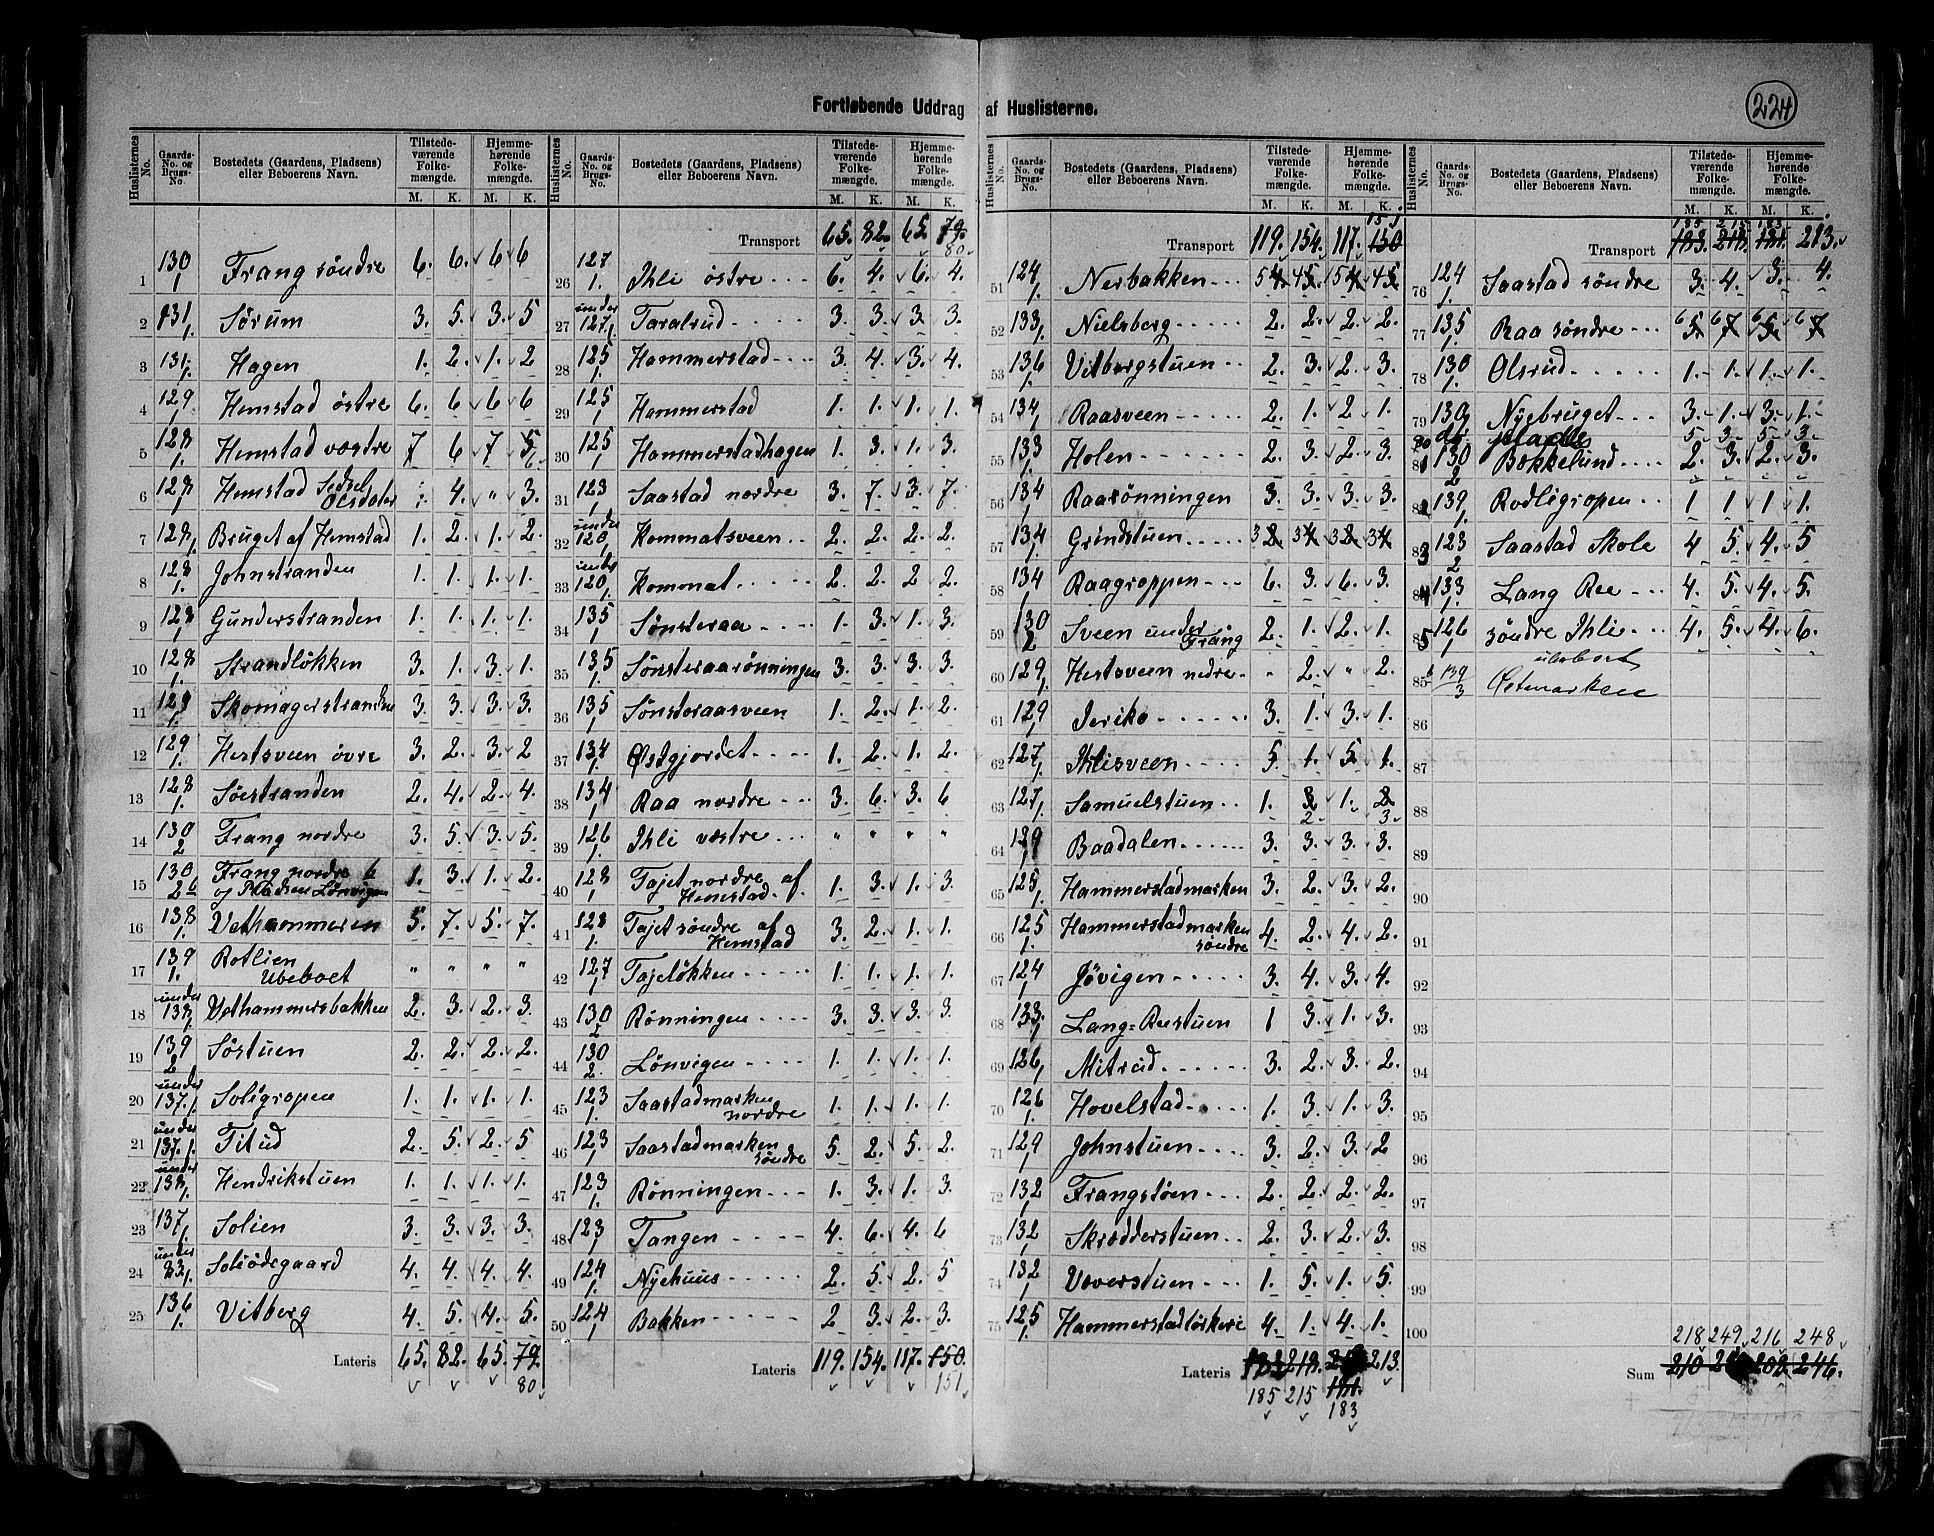 224
Fortløbende Uddrag af Huslisterne.
Huslisternes No. | Gaards-No. og Brugs-No. | Bostedets (Gaardens, Pladsens) eller Beboerens Navn. | Tilstedeværende Folkemængde. M. K. | Hjemmehørende Folkemængde. M. K.
1 130/1 Frang söndre 6. 6. 6 6
2 131/1. Sörum 3. 5. 3. 5
3 131/1. Hagen 1. 2. 1. 2
4 129/1. Hemstad östre 6. 6 6 6
5 128/1. Hemstad vestre 7 6 7 5 6
6 128/1. Hemstad Sidsel Olsdater 4. " 3.
7 128/1. Bruget af Hemstad 1. 2. 1. 2.
8 128/1. Johnstranden 1. 1. 1. 1.
9 128/1. Gunderstranden 1. 1. 1. 1.
10 128/1. Strandlökken 3. 1. 3. 1.
11 128/1. Skomagerstranden 3. 3. 3. 3.
12 129/1. Hestsveen övre 3. 2. 3. 2
13 128/1. Söestranden 2. 4. 2. 4.
14 130/2 Frang nordre 3. 5. 3. 5.
15 130/2 b Frang nordre b og Pladsen Lönvigen 1. 3. 1. 2.
16 138/1. Vethammeren 5. 7. 5. 7.
17 139/1. Rotlien Ubeboet " " " "
18 under 138/1. Vethammersbakken 2. 3. 2. 3.
19 139/2 Söstuen 2. 2. 2. 2.
20 under 137/1. Soligropen 1. 1. 1. 1.
21 under 137/1. Titud 2. 5. 2. 5
22 under 138/1. Hendrikstuen 1. 1. 1. 1.
23 137/1. Solien 3. 3. 3. 3.
24 under 83/1. Soliödegaard 4. 4. 4. 4.
25 136/1. Vitberg 4. 5. 4. 5.
Lateris 65. 82. 65. 79. 80
Huslisternes No. | Gaards-No. og Brugs-No. | Bostedets (Gaardens, Pladsens) eller Beboerens Navn. | Tilstedeværende Folkemængde. M. K. | Hjemmehørende Folkemængde. M. K.
Transport 65. 82. 65. 79. 80
26 127/1. Ihli östre 6. 4. 6. 4.
27 under 127/1. Taralrud 3. 3. 3. 3.
28 125/1. Hammerstad 3. 4. 3. 4.
29 125/1. Hammerstad 1. 1. 1. 1.
30 125/1 Hammerstadhagen 1. 3. 1. 3.
31 123/1. Saastad nordre 3. 7. 3. 7.
32 under 120/1 Kommatsveen 2. 2. 2. 2.
33 under 120/1. Kommat 2. 2. 2 2.
34 135/1 Sönsteraa 1. 3. 1. 3.
35 135/1. Sönsteraarönningen 3. 3. 3. 3.
36 135/1 Sönsteraasveen 1. 2. 1. 2.
37 134/1. Østgjordet 1. 2. 1. 2.
38 134/1. Raa nordre 3. 6. 3. 6
39 126/1. Ihli vestre " " " "
40 128/1 Tajet nordre af Hemstad 1. 3. 1. 3.
41 128/1. Tajet söndre af Hemstad 3. 2. 1. 1.
42 127/1 Tajelökken 1. 1. 1. 1.
43 130/2 Rönningen 3. 3. 3. 3.
44 130/2. Lönvigen 1. 1. 1. 1.
45 123/1. Saastadmarken nordre 1. 1. 1. 1.
46 123/1 Saastadmarken söndre 5. 2. 5. 2.
47 123/1. Rönningen 1. 3. 1. 3.
48 123/1 Tangen 4. 6. 4. 6
49 124/1. Nyehuus 2. 5. 2. 5
50 124/1 Bakken 2 3. 2. 3.
Lateris 119. 154. 117. 150. 151
Huslisternes No. | Gaards-No. og Brugs-No. | Bostedets (Gaardens, Pladsens) eller Beboerens Navn. | Tilstedeværende Folkemængde. M. K. | Hjemmehørende Folkemængde. M. K.
151
Transport 119. 154. 117. 150
51 124/1. Nerbakken 54. 45. 54 45
52 133/1 Nielsberg 2. 2. 2. 2.
53 136/1. Vitbergstuen 2. 3. 2. 3.
54 134/1. Raasveen 2. 1. 2. 1.
55 133/1 Holen 2. 3. 2. 3.
56 134/1 Raarönningen 3. 3. 3. 3.
57 134/1 Grindstuen 32. 34. 32. 34.
58 134/1. Raagroppen 6. 3. 6. 3.
59 130/2 Sveen under Frang 2. 1. 2. 1.
60 129/1. Hestsveen nedre " 2. " 2.
61 129/1 Jeriko 3. 1. 3. 1.
62 127/1. Ihlisveen 5. 1. 5. 1.
63 127/1. Samuelstuen 1. 3 2. 1. 2 3.
64 129/1 Baadalen 3. 3. 3. 3.
65 125/1 Hammerstadmarken 3. 2. 3. 2.
66 125/1. Hammerstadmarken söndre 4. 2. 4. 2.
67 124/1 Jövigen 3. 4. 3. 4.
68 133/1 Lang=Reestuen 1 3. 1. 3.
69 126/1 Mitrud 3. 2. 3. 2.
70 126/1 Hovelstad 1. 3. 1. 3.
71 129/1 Johnstuen 3. 2. 3. 2
72 132/1 Frangstöen 2. 2. 2. 2.
73 132/1 Skredderstuen 2. 3. 2. 3.
74 132/1 Væverstuen 1. 5. 1. 5.
75 125/1. Hammerstadlökken 4. 1. 4. 1.
Lateris 183 218. 213.
185 215 181.
183
Huslisternes No. | Gaards-No. og Brugs-No. | Bostedets (Gaardens, Pladsens) eller Beboerens Navn. | Tilstedeværende Folkemængde. M. K. | Hjemmehørende Folkemængde. M. K.
185 215 183
Transport 183. 218. 181. 213.
76 124/1. Saastad söndre 3. 4. 3. 4.
77 135/1. Raa söndre 65 67 65 67
78 130/1 Olsrud 1. 1. 1. 1.
79 130/1 Nyebruget 3. 1. 3. 1.
80 do pladse 5 3 5 3
81 130/2 Bakkelund 2. 3. 2. 3.
82 139/1. Rodligropen 1 1 1 1.
83 123/2 Saastad Skole 4 5. 4. 5
84 133/1. Lang Ree 4. 5. 4. 5.
85 126/1 söndre Ihli 4. 5. 4. 6.
85b 139/3 Østmarken ubeboet
86
87
88
89
90
91
92
93
94
95
96
97
98
99
100
218 249 216 248
Sum 210 208. 246.